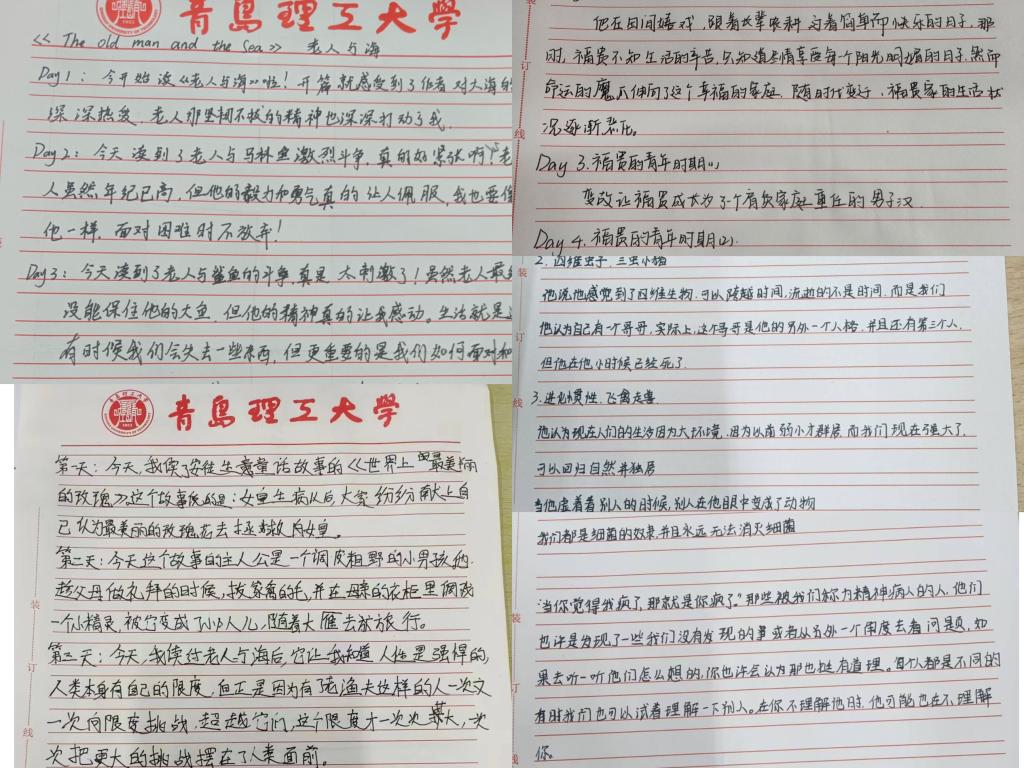 青島理工大學
<< The old man and the Sea >> 老人与海
Day1: 今开始读《老人与海》啦！开篇就感受到了作者对大海的
深深热爱，老人那坚韧不拔的精神也深深打动了我.
Day2: 今天读到了老人与马林鱼激烈斗争，真的好紧张啊！老
人虽然年纪已高，但他的毅力和勇气真的让人佩服，我也要像
他一样，面对困难时不放弃！
Day3: 今天读到了老人与鲨鱼的斗争，真是太刺激了！虽然老人最终
没能保住他的大鱼，但他的精神真的让我感动。生活就是这
有时候我们会失去一些东西，但更重要的是我们如何面对和
他在田间嬉戏，跟着长辈农耕，过着简单而快乐的日子，那
时，福贵不知生活的辛苦，只知道尽情享受每一个阳光明媚的日子.然而
命运的魔爪伸向了这个幸福的家庭. 随时代变迁，福贵家的生活状
况逐渐恶化。
Day 3. 福贵的青年时期(1)
变故让福贵成长为了个肩负家庭重任的男子汉.
Day 4. 福贵的青年时期(2).
2. 四维虫子、三虫小猪
他说他感觉到了四维生物.可以跨越时间，流逝的不是时间，而是我们
他认为自己有一个哥哥，实际上，这个哥哥是他的另外一个人格，并且还有第三个人，
但他在他小时候已经死了.
3. 进化惯性、飞禽走兽.
他认为现在人们的生活因为大环境，因为以前弱小才群居，而我们现在强大了，
可以回归自然并独居
当他虚着看别人的时候，别人在他眼中变成了动物
我们都是细菌的奴隶，并且永远无法消灭细菌
"当你觉得我疯了，那就是你疯了。"那些被我们称为精神病人的人，他们
也许是发现了一些我们没有发现的事或者从另外一个角度去看问题，如
果去听一听他们怎么想的，你也许会认为那也挺有道理。每个人都是不同的
有时我们也可以试着理解一下别人。在你不理解他时，他可能也在不理解
你。
青島理工大學
第一天：今天，我读了安徒生童话故事的《世界上最美丽
的玫瑰》，这个故事说的是：女皇生病以后，大家纷纷献上自
己认为最美丽的玫瑰花去拯救女皇.
第二天：今天这个故事的主人公是一个调皮粗野的小男孩他
趁父母做礼拜的时候，拔家禽的毛，并在母亲的衣柜里调戏
一个小精灵，被它变成了小人儿，随着大雁去旅行。
第三天：今天，我读过老人与海后，它让我知道人性是强悍的，
人类本身有自己的限度，但正是因为有老渔夫这样的人一次又
一次向限度挑战，超越它们，这个限度才一次次扩大，一次
次把更大的挑战摆在了人类面前。
装
订
线